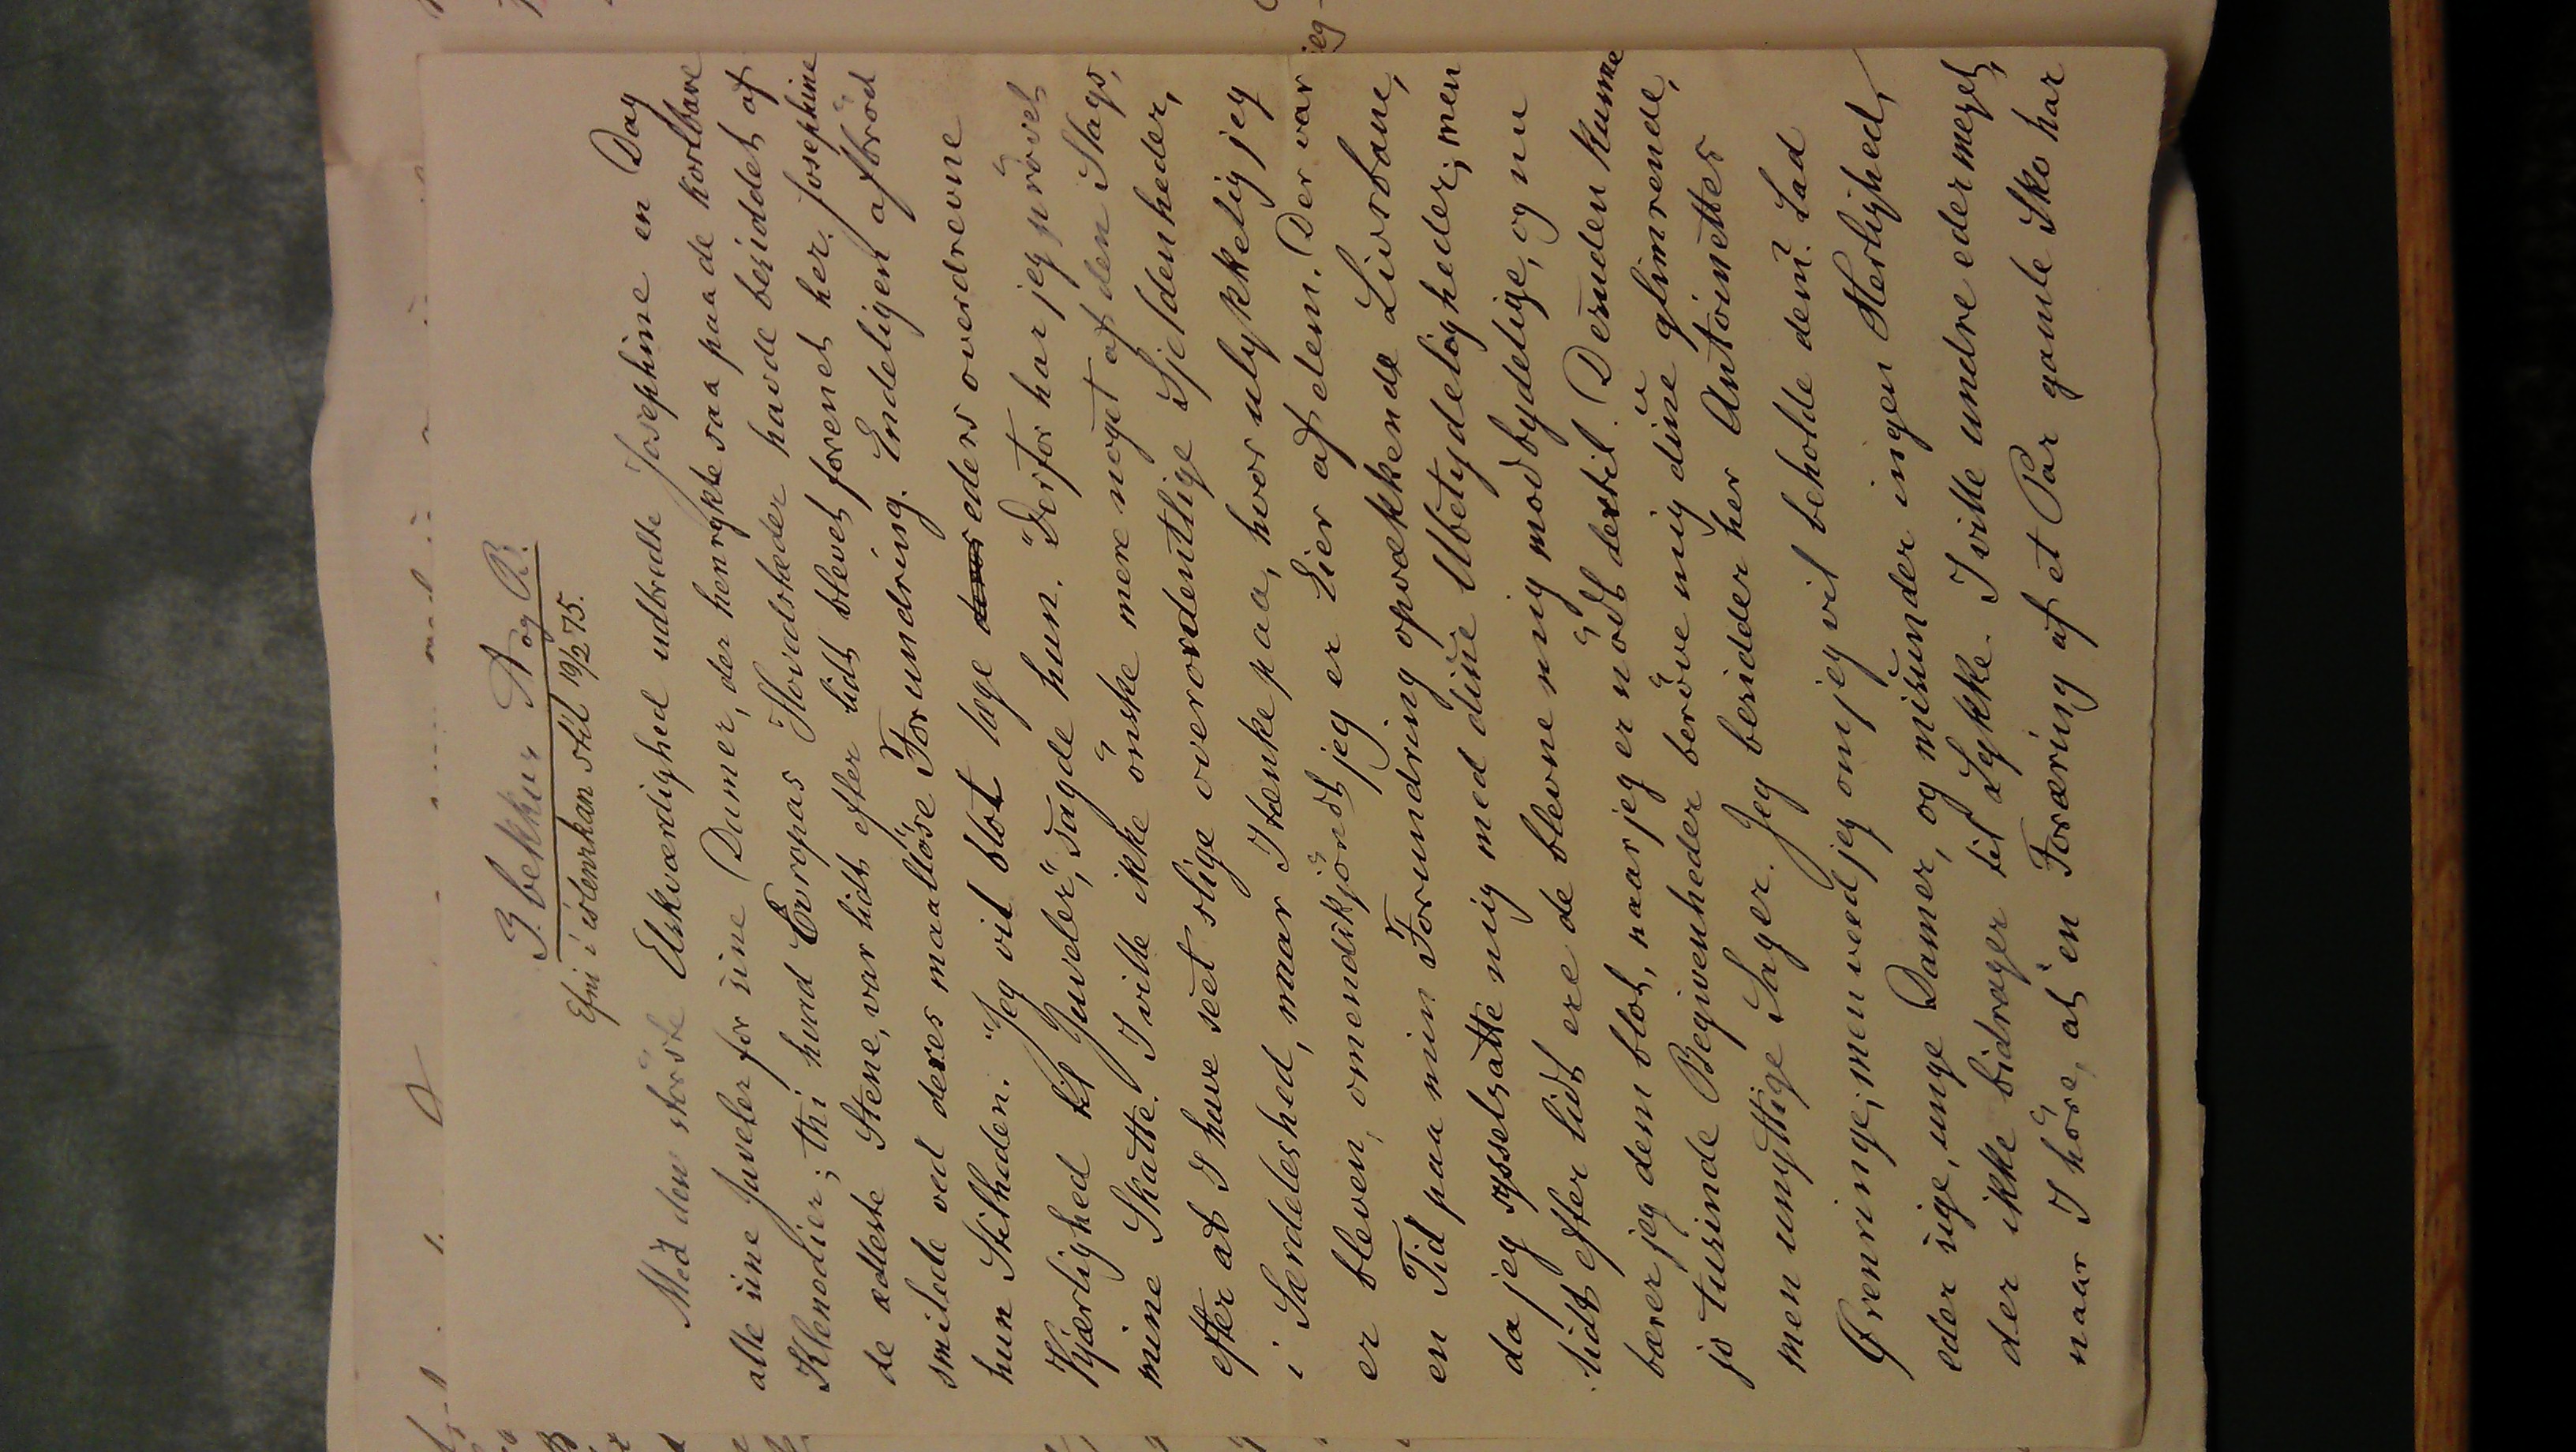 3. bekkur A og B.
Efni i islenzkan stil 19/2 75.
Med den störste Elskværdighed udbredte Josephine en Dag
alle sine Juveler for sine Damer, der henrykte saa paa de kostbare
Klenodier; thi hvad Evropas Hovedstæder havde besiddet af
de ædleste Stene, var lidt efter lidt blevet forenet her. Josephine
smilede ved deres maallöse Forundring. Endeligen afbröd
hun Stilheden. "Jeg vil blot lage deres eders overdrevne
Kjærlighed til Juveler", sagde hun. "Derfor har jeg prövet
mine Skatte. I ville ikke önske mere noget af den Slags,
efter at I have seet slige overordentlige Sjeldenheder,
i Særdeleshed, naar I tænke paa, hvor ulykkelig jeg
er bleven, omendskjöndt jeg er Eier af dem. Der var
en Tid paa min Forundring opvækkende Livsbane,
da jeg sysselsatte mig med disse Ubetydeligheder; men
lidt efter lidt ere de blevne mig modbydelige, og nu
bærer jeg dem blot, naar jeg er nödt dertil. Desuden kunne
jo tusinde Begivenheder beröve mig disse glimrende,
men unyttige Sager. Jeg besidder her Antoinettes
Ørenringe; men veed jeg om jeg vil beholde dem? Lad
eder sige, unge Damer, og misunder ingen Herlighed,
der ikke bidrager til Lykke. I ville undre eder meget,
naar I höre, at en Foræring af et Par gamle Sko har
jeg